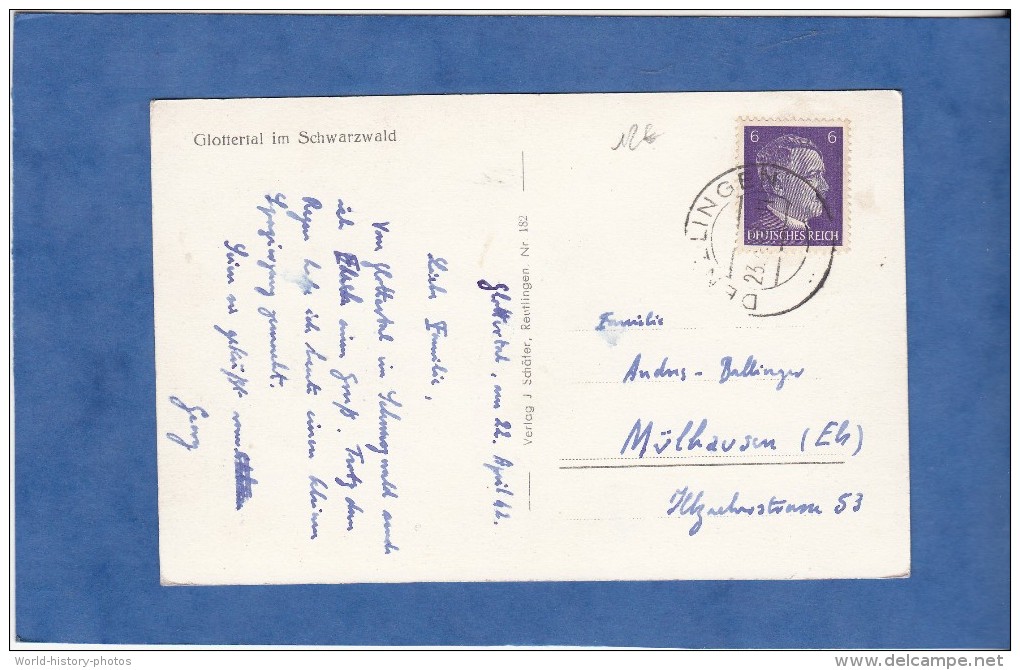 Glottertal im Schwarzwald
Glottertal, am 22. April 42.
Liebe Familie,
Von Glottertal im Schwarzwald sende
ich einen Gruß. Trotz dem
Regen habe ich heute einen kleinen
Spaziergang gemacht.
Seien sie gegrüßt vom
Georg
Verlag J. Schäfer, Reutlingen. Nr. 182
6 6
DEUTSCHES REICH
23.
Familie
Andres - Ballinger
Mülhausen (Els)
Illzacherstrasse 53
World-history-photos
delcampe.net